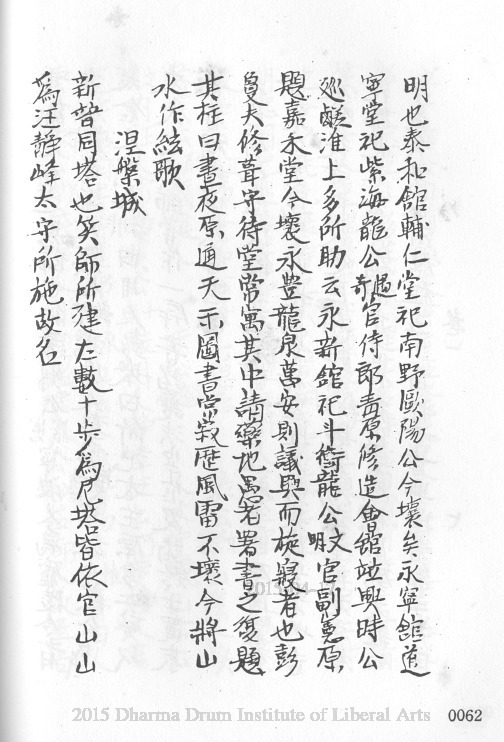 明也泰和館輔仁堂祀南野歐陽公今壞矣永寧館道
寧堂祀紫海龍公遇奇官侍郎青原修造會館並興時公
巡鹺淮上多所助云永新館祀斗衝龍公文明官副憲原
題嘉禾堂今壞永豐龍泉萬安則議興而旋寢者也彭
夐夫修葺守待堂常寓其中請藥地愚者署書之復題
其柱曰晝夜原通天示圖書常寂歷風雷不壞今將山
水作絃歌
涅槃城
新普同塔也笑師所建左數十步為尼塔皆依官山山
為汪靜峰太守所施故名
2015 Dharma Drum Institute of Liberal Arts
0062